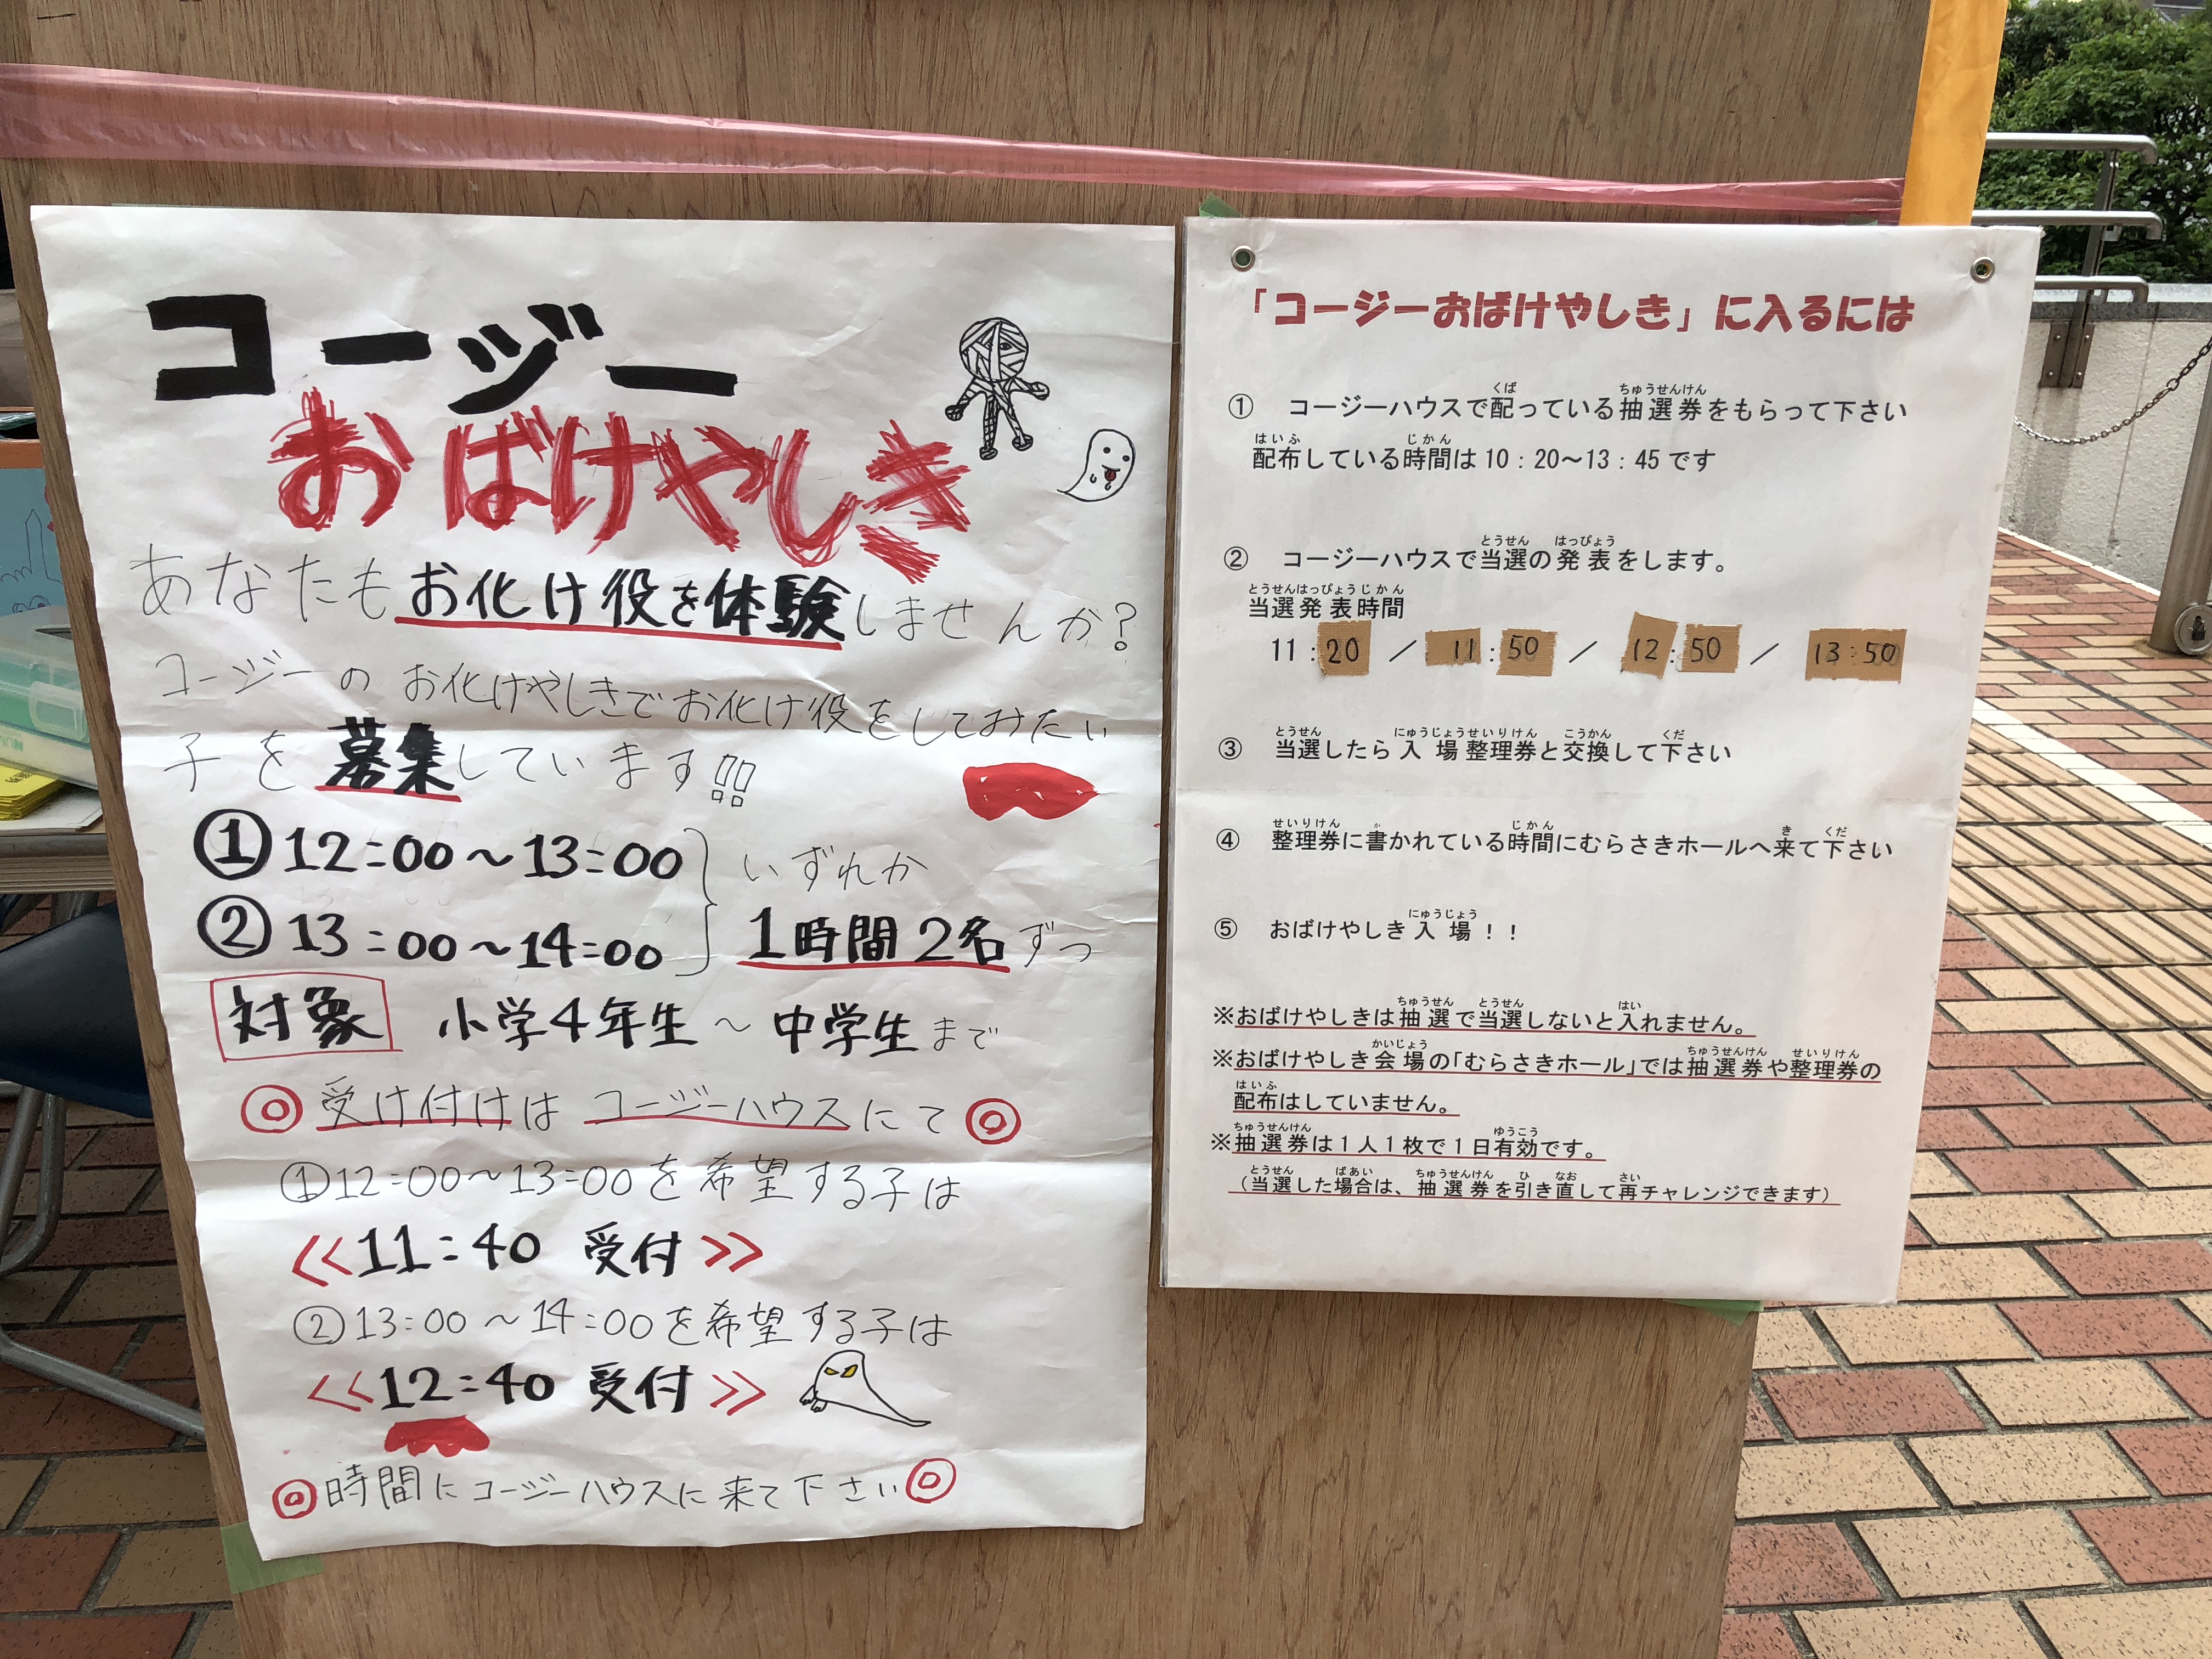 コージー
おばけやしき
あなたもお化け役を体験しませんか?
コージーの お化けやしきでお化け役をしてみたい
子を募集しています!!
① 12:00～13:00
② 13:00～14:00
いずれか
1時間2名ずつ
対象 小学4年生～中学生まで
◎受け付けは コージーハウスにて◎
①12:00～13:00を希望する子は
<<11:40 受付>>
②13:00～14:00を希望する子は
<<12:40 受付>>
◎時間にコージーハウスに来て下さい◎
「コージーおばけやしき」に入るには
① コージーハウスで配っている抽選券をもらって下さい
配布している時間は10:20～13:45です
② コージーハウスで当選の発表をします。
当選発表時間
11:20 ／ 11:50 ／ 12:50 ／ 13:50
③ 当選したら入場整理券と交換して下さい
④ 整理券に書かれている時間にむらさきホールへ来て下さい
⑤ おばけやしき入場！！
※おばけやしきは抽選で当選しないと入れません。
※おばけやしき会場の「むらさきホール」では抽選券や整理券の
配布はしていません。
※抽選券は1人1枚で1日有効です。
（当選した場合は、抽選券を引き直して再チャレンジできます）